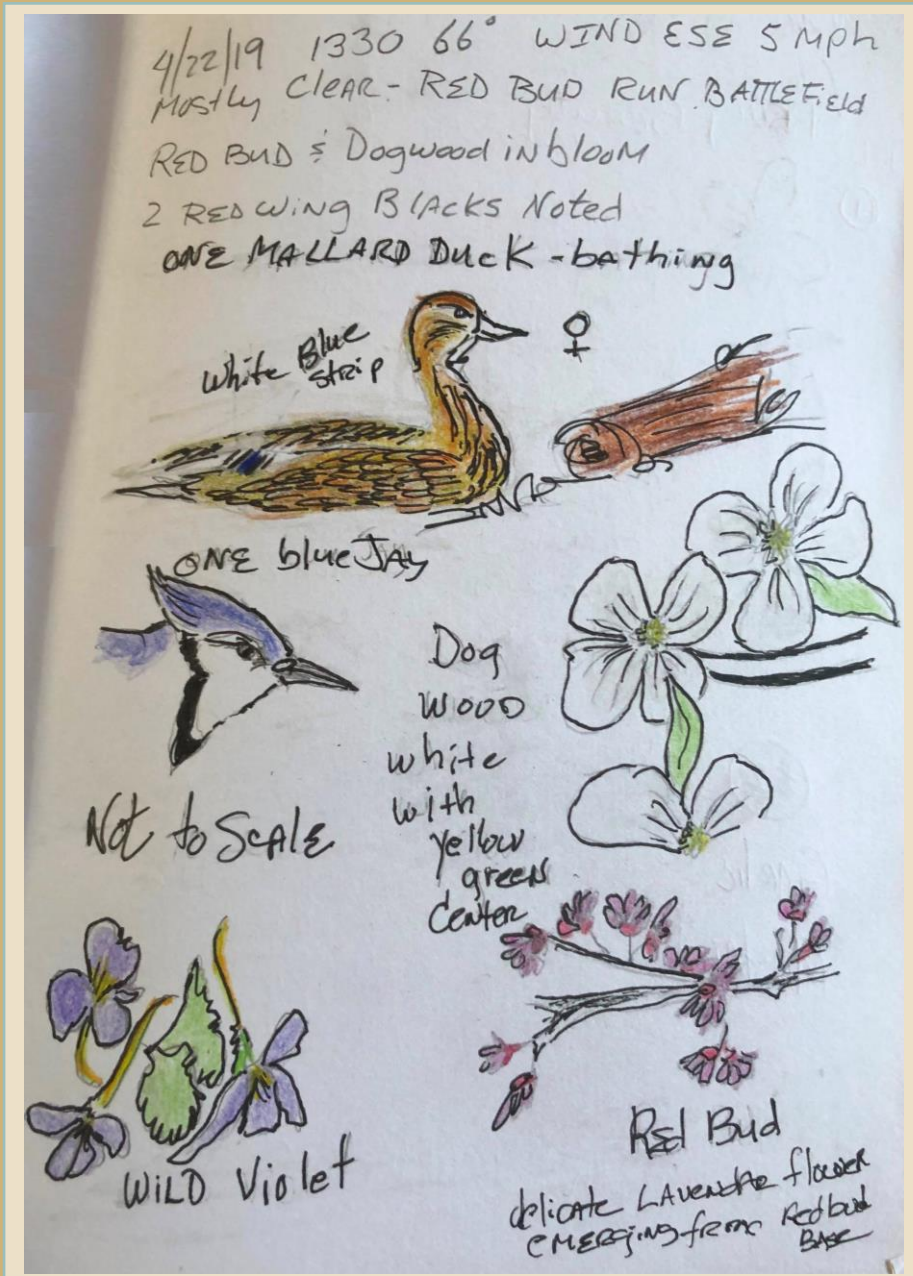 4/22/19 1330 66° WIND ESE 5 mph
Mostly Clear - RED BUD RUN BATTLEField
RED BUD & Dogwood in bloom
2 RED wing Blacks Noted
ONE MALLARD Duck - bathing
White Blue
Strip
♀
ONE blue JAy
Dog
wood
white
with
yellow
green
Center
Not to Scale
Wild Violet
Red Bud
delicate LAvender flower
emerging from Redbud
BASE